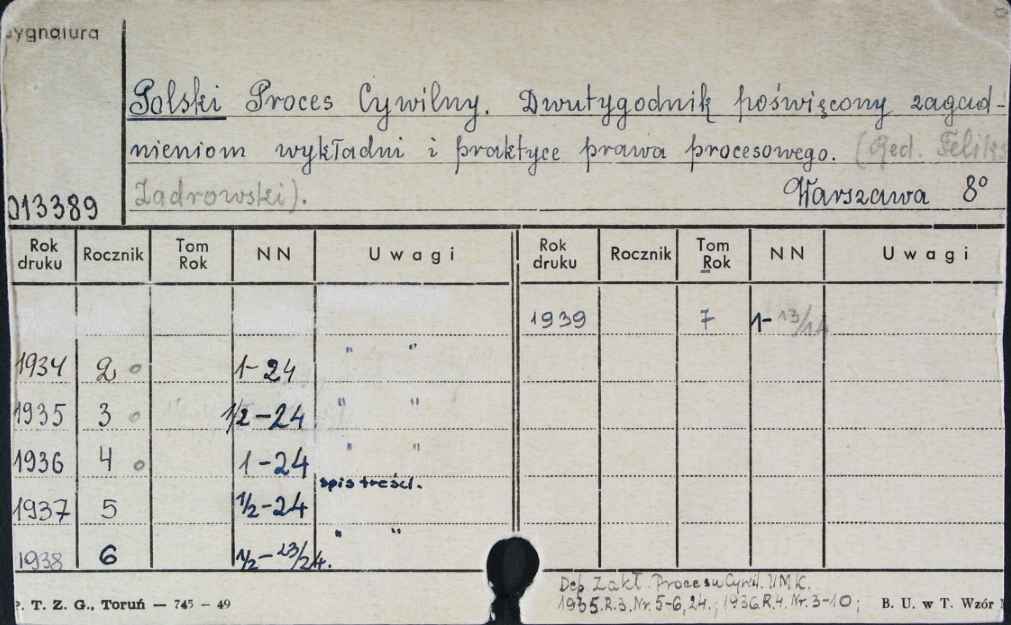 Sygnatura
Polski Proces Cywilny. Dwutygodnik poświęcony zagad-
nieniom wykładni i praktyce prawa procesowego. (Red. Feliks
Zadrowski).
Warszawa 8°
013389
Rok druku Rocznik Tom Rok NN Uwagi Rok druku Rocznik Tom Rok NN Uwagi
1939 7 1-13/14
1934 2 o 1-24 " "
1935 3 o 1/2-24 " "
1936 4 o 1-24 " "
spis treści.
1937 5 1/2-24
1938 6 1/2-23/24. " "
Dep. Zakł. Procesu Cywil. UMK.
1935.R.3.Nr.5-6,24.; 1936.R.4.Nr.3-10;
P. T. Z. G., Toruń — 745 — 49
B. U. w T. Wzór